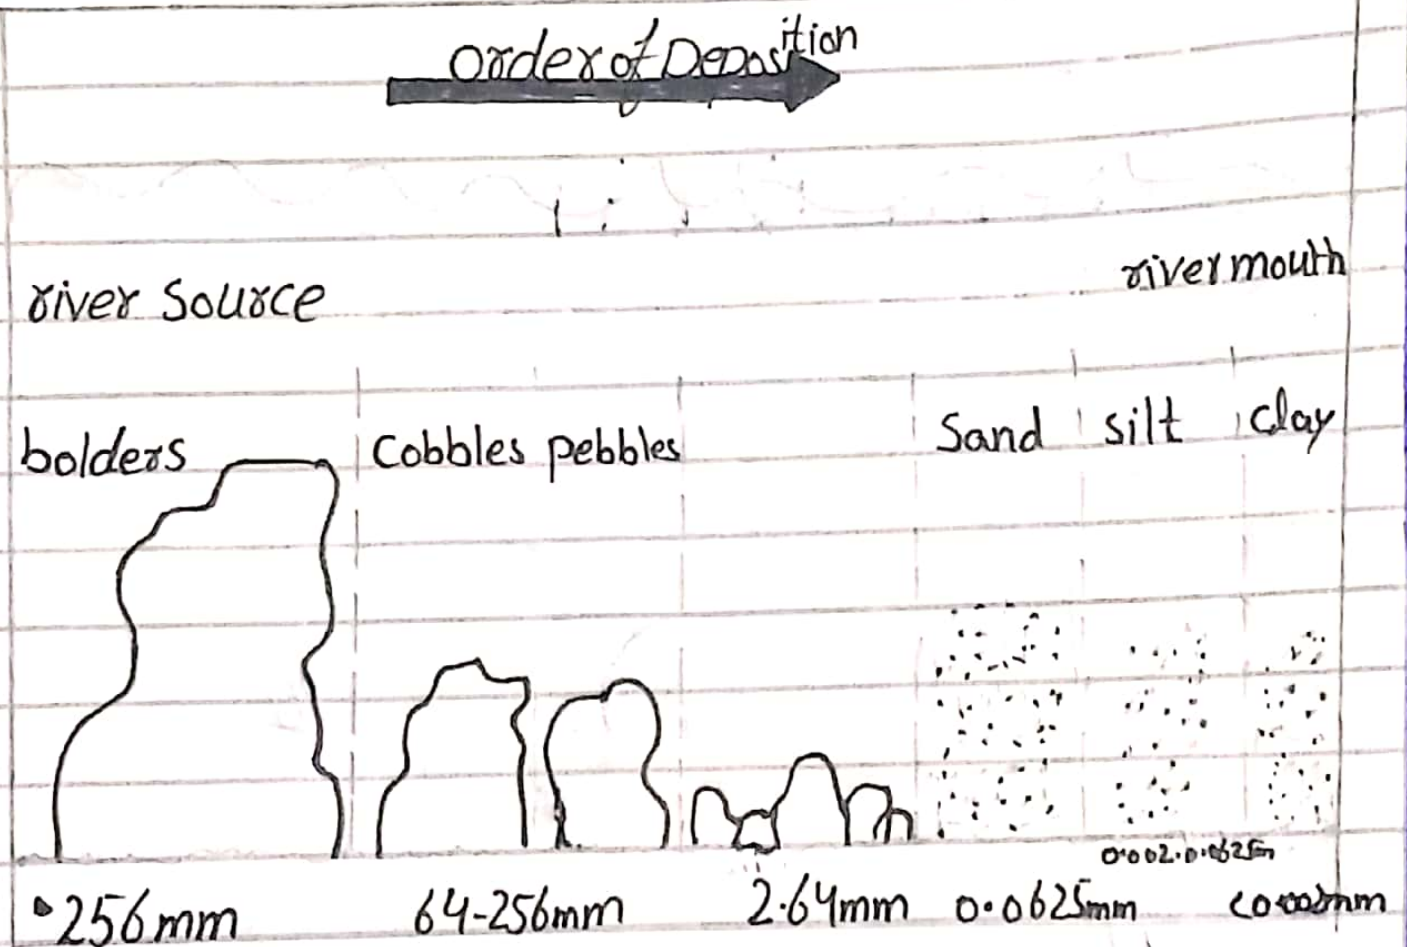 Order of Deposition
river Source
river mouth
bolders
Cobbles pebbles
Sand
silt
clay
0.002.0.0625m
•256mm
64-256mm
2.64mm
0.0625mm
<0.002mm